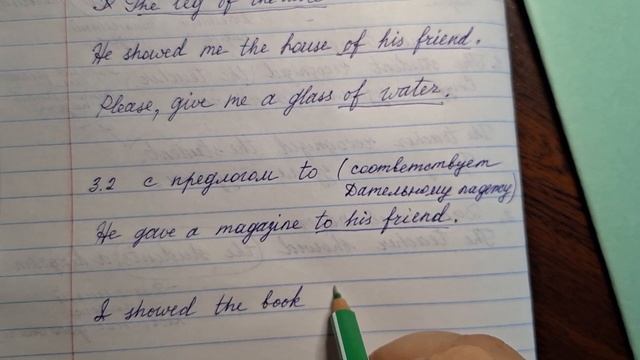 The leg of the
He showed me the house of his friend.
Please, give me a glass of water.
3.2 с предлогом to (соответствует
Дательному падежу)
He gave a magazine to his friend.
I showed the book